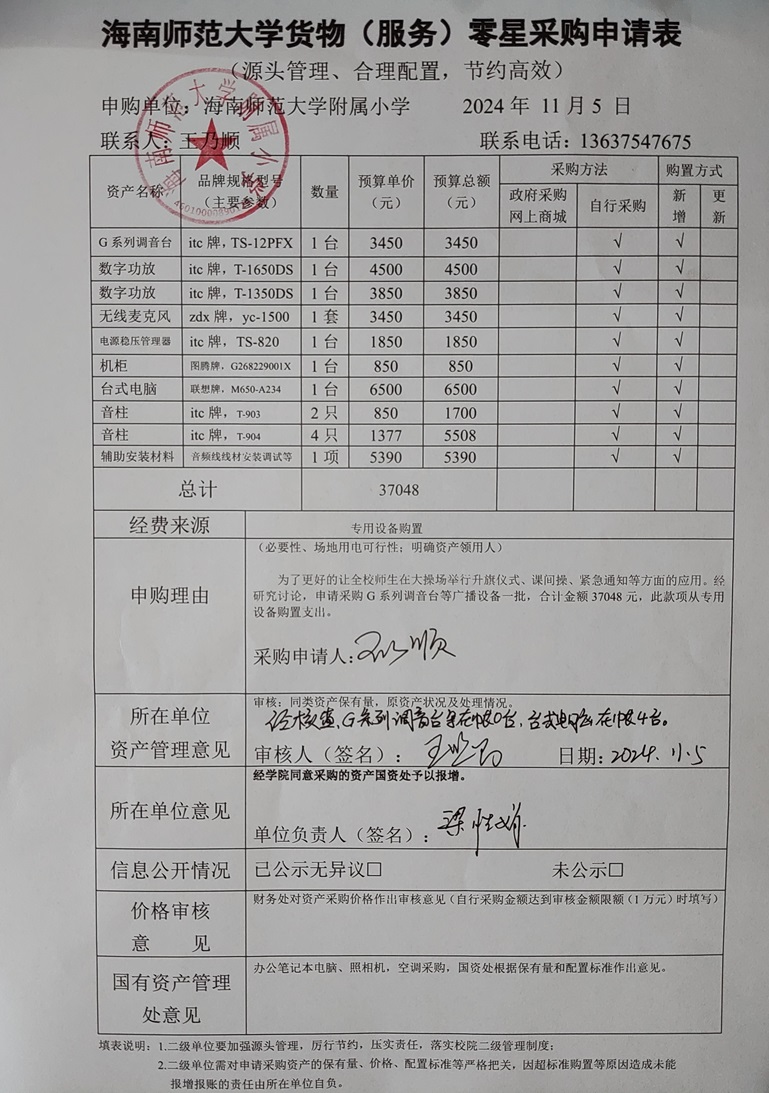 海南师范大学货物（服务）零星采购申请表
（源头管理、合理配置，节约高效）
申购单位：海南师范大学附属小学 2024 年 11 月 5 日
联系人：王乃顺 联系电话：13637547675
海南师范大学附属小学
资产名称 品牌规格型号（主要参数） 数量 预算单价（元） 预算总额（元） 采购方法 购置方式
政府采购网上商城 自行采购 新增 更新
G 系列调音台 itc 牌，TS-12PFX 1 台 3450 3450 √ √
数字功放 itc 牌，T-1650DS 1 台 4500 4500 √ √
数字功放 itc 牌，T-1350DS 1 台 3850 3850 √ √
无线麦克风 zdx 牌，yc-1500 1 套 3450 3450 √ √
电源稳压管理器 itc 牌，TS-820 1 台 1850 1850 √ √
机柜 图腾牌，G268229001X 1 台 850 850 √ √
台式电脑 联想牌，M650-A234 1 台 6500 6500 √ √
音柱 itc 牌，T-903 2 只 850 1700 √ √
音柱 itc 牌，T-904 4 只 1377 5508 √ √
辅助安装材料 音频线线材安装调试等 1 项 5390 5390 √ √
总计 37048
经费来源 专用设备购置
申购理由
（必要性、场地用电可行性；明确资产领用人）
为了更好的让全校师生在大操场举行升旗仪式、课间操、紧急通知等方面的应用。经
研究讨论，申请采购 G 系列调音台等广播设备一批，合计金额 37048 元，此款项从专用
设备购置支出。
采购申请人：王乃顺
所在单位
资产管理意见
审核：同类资产保有量，原资产状况及处理情况。
经核查，G系列调音台现在帐0台，台式电脑在帐4台。
审核人（签名）： 日期：2024.11.5
所在单位意见
经学院同意采购的资产国资处予以报增。
单位负责人（签名）：
信息公开情况 已公示无异议□ 未公示□
价格审核
意 见
财务处对资产采购价格作出审核意见（自行采购金额达到审核金额限额（1 万元）时填写）
国有资产管理
处意见
办公笔记本电脑、照相机，空调采购，国资处根据保有量和配置标准作出意见。
填表说明：1.二级单位要加强源头管理，厉行节约，压实责任，落实校院二级管理制度；
2.二级单位需对申请采购资产的保有量、价格、配置标准等严格把关，因超标准购置等原因造成未能
报增报账的责任由所在单位自负。